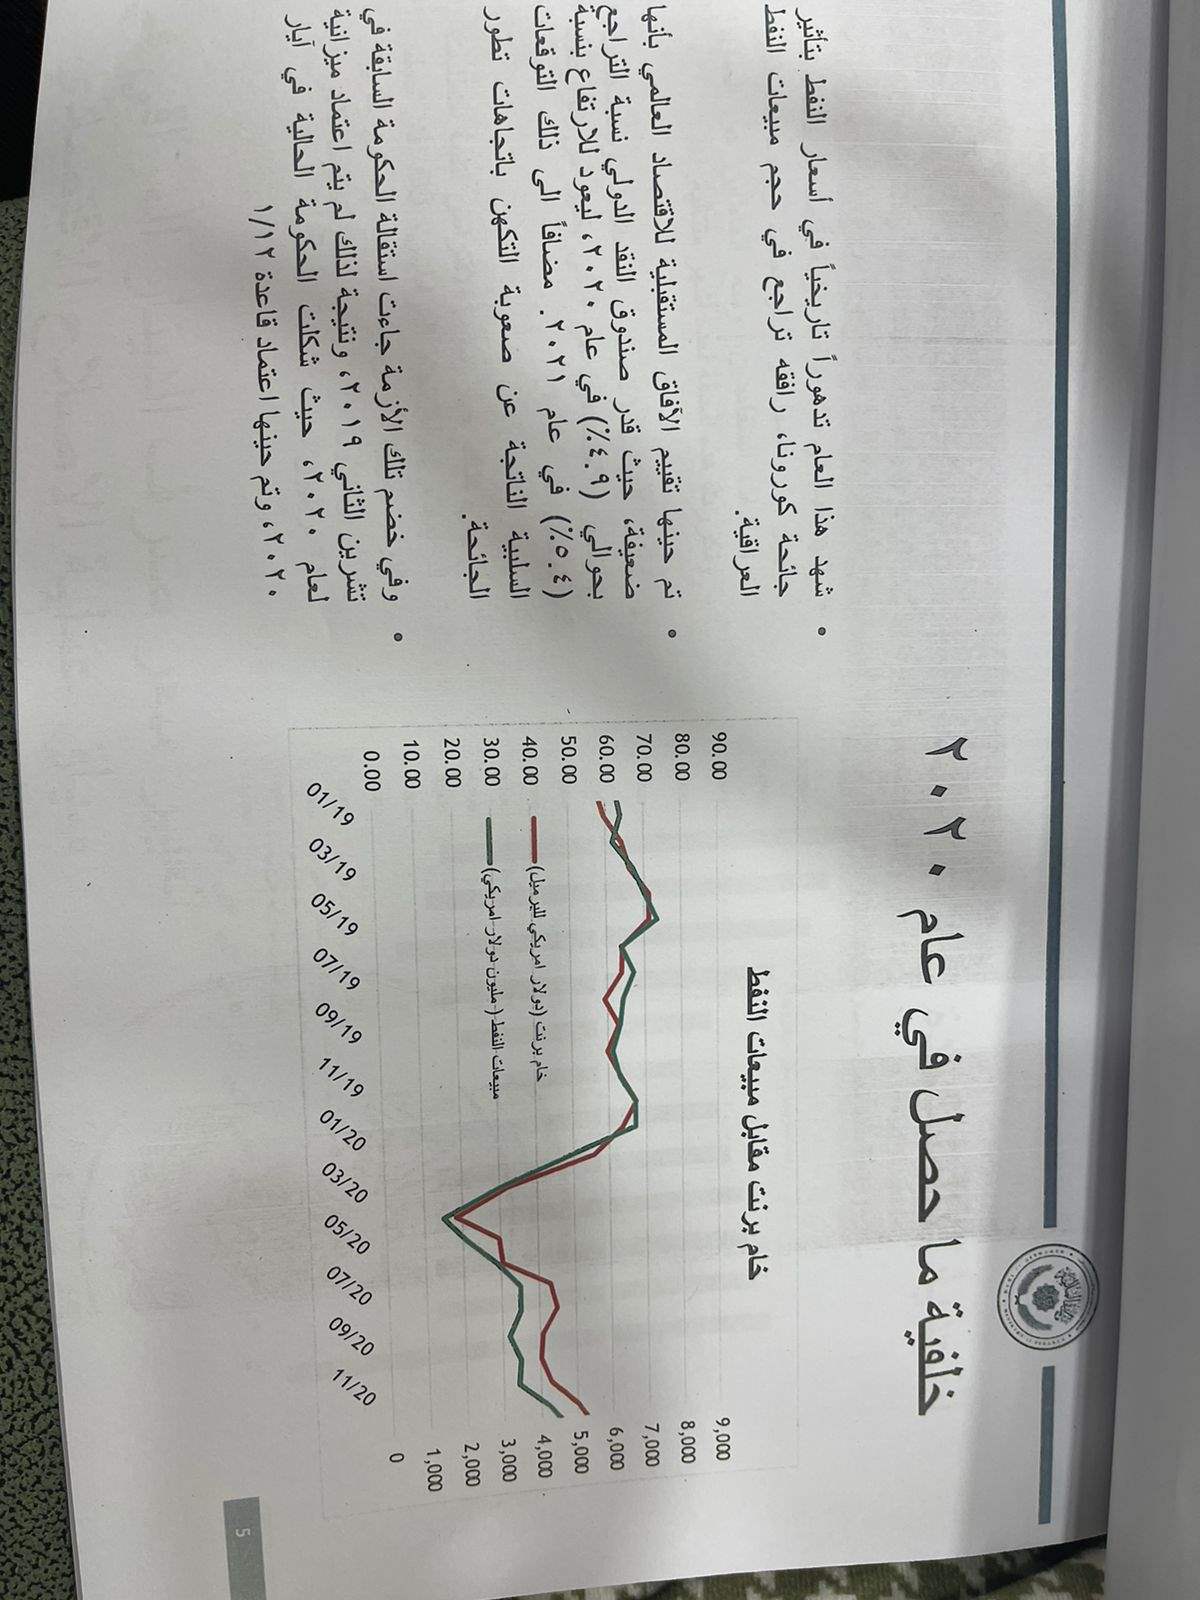 وزارة المالية
خلفية ما حصل في عام ٢٠٢٠
• شهد هذا العام تدهوراً تاريخياً في أسعار النفط بتأثير
جائحة كورونا، رافقه تراجع في حجم مبيعات النفط
العراقية.
• تم حينها تقييم الآفاق المستقبلية للاقتصاد العالمي بأنها
ضعيفة، حيث قدر صندوق النقد الدولي نسبة التراجع
بحوالي (٤.٩٪) في عام ٢٠٢٠، ليعود للارتفاع بنسبة
(٥.٤٪) في عام ٢٠٢١. مضافاً الى ذلك التوقعات
السلبية الناتجة عن صعوبة التكهن باتجاهات تطور
الجائحة.
• وفي خضم تلك الأزمة جاءت استقالة الحكومة السابقة في
تشرين الثاني ٢٠١٩، ونتيجة لذلك لم يتم اعتماد ميزانية
لعام ٢٠٢٠، حيث شكلت الحكومة الحالية في آيار
٢٠٢٠، وتم حينها اعتماد قاعدة ١/١٢
خام برنت مقابل مبيعات النفط
90.00
80.00
70.00
60.00
50.00
40.00
30.00
20.00
10.00
0.00
9,000
8,000
7,000
6,000
5,000
4,000
3,000
2,000
1,000
0
خام برنت (دولار امريكي للبرميل)
مبيعات النفط ( مليون دولار امريكي)
01/19
03/19
05/19
07/19
09/19
11/19
01/20
03/20
05/20
07/20
09/20
11/20
5